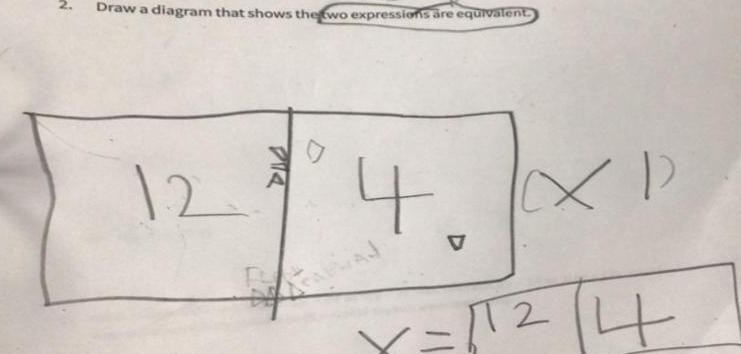 2. Draw a diagram that shows the two expressions are equivalent.
12 4 (x 1)
x = 12 4